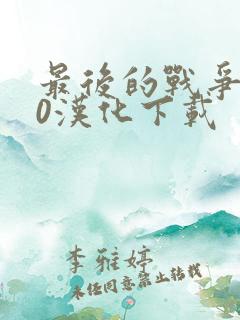 最後的戰爭
0漢化下載
李雅婷
未经同意禁止转载